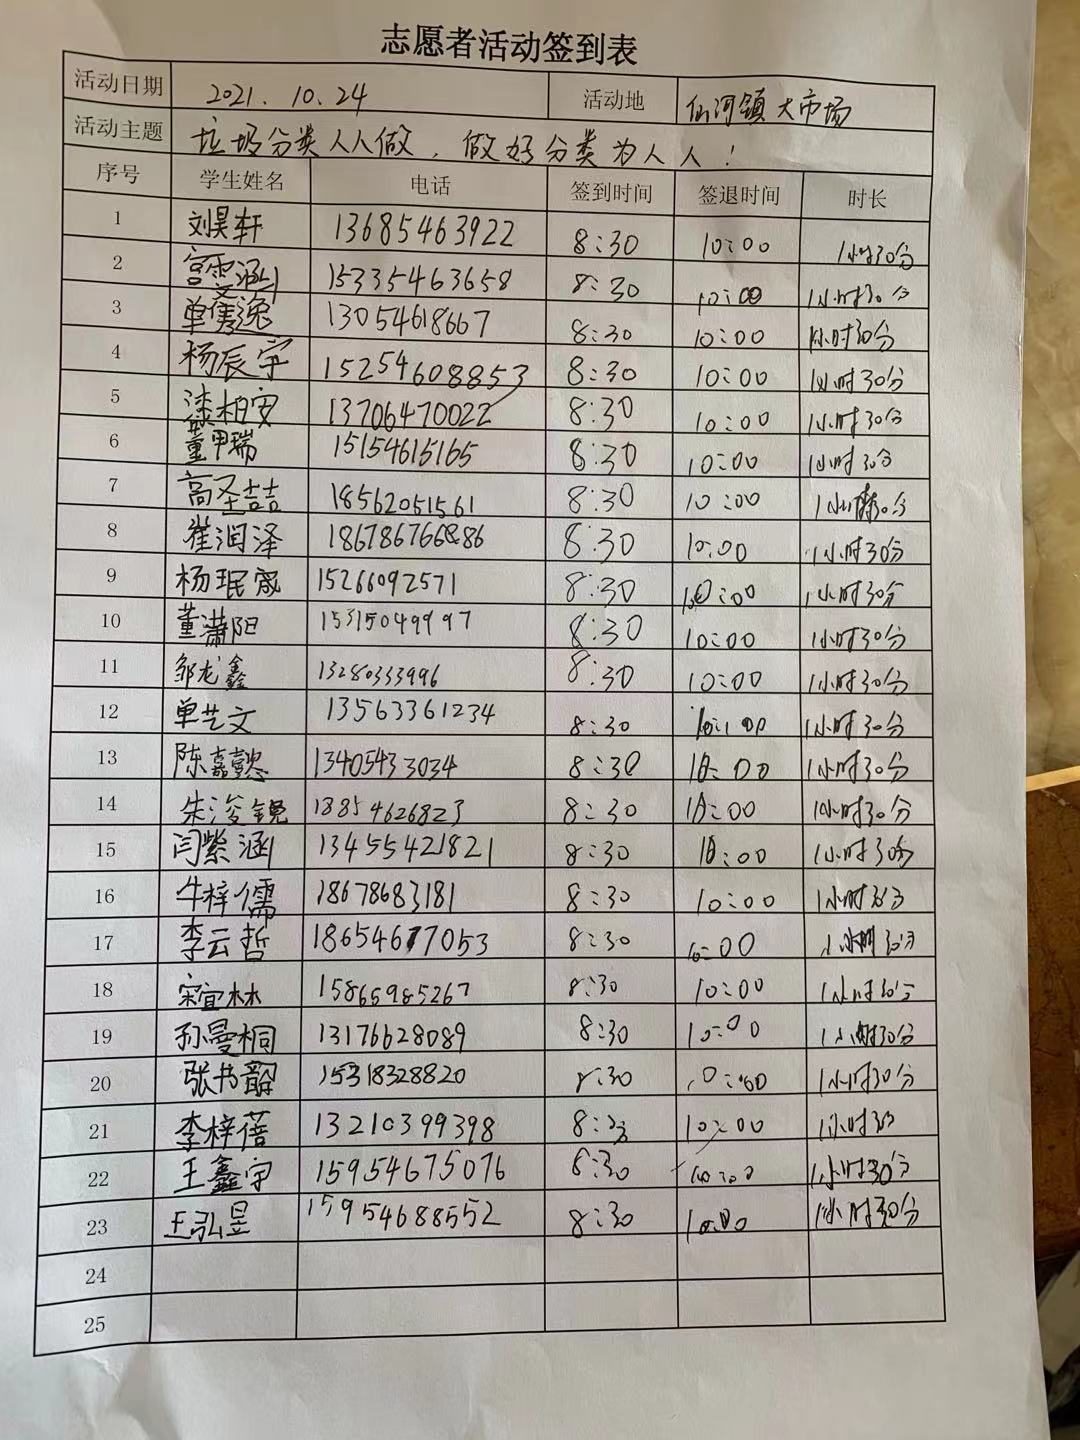 志愿者活动签到表
活动日期 2021.10.24 活动地 仙河镇大市场
活动主题 垃圾分类人人做，做好分类为人人！
序号 学生姓名 电话 签到时间 签退时间 时长
1 刘昊轩 13685463922 8:30 10:00 1小时30分
2 宫雯涵 15335463658 8:30 10:00 1小时30分
3 单隽逸 13054618667 8:30 10:00 1小时30分
4 杨辰宇 15254608853 8:30 10:00 1小时30分
5 漆柏安 13706470022 8:30 10:00 1小时30分
6 董甲瑞 15154615165 8:30 10:00 1小时30分
7 高圣喆 18562051561 8:30 10:00 1小时30分
8 崔润泽 8:30 10:00 1小时30分
9 杨珉宬 15266092571 8:30 10:00 1小时30分
10 董潇阳 15315049997 8:30 10:00 1小时30分
11 邹龙鑫 13280333996 8:30 10:00 1小时30分
12 单艺文 13563361234 8:30 10:00 1小时30分
13 陈嘉懿 13405433034 8:30 10:00 1小时30分
14 朱浚锐 18854626823 8:30 10:00 1小时30分
15 闫紫涵 13455421821 8:30 10:00 1小时30分
16 牛梓儒 18678683181 8:30 10:00 1小时30分
17 李云哲 18654677053 8:30 10:00 1小时30分
18 宋宜林 15865985267 8:30 10:00 1小时30分
19 孙曼桐 13176628089 8:30 10:00 1小时30分
20 张书韶 15318328820 8:30 10:00 1小时30分
21 李梓蓓 13210399398 10:00 1小时30分
22 王鑫宇 15954675076 8:30 10:00 1小时30分
23 王弘昱 15954688552 8:30 10:00 1小时30分
24
25